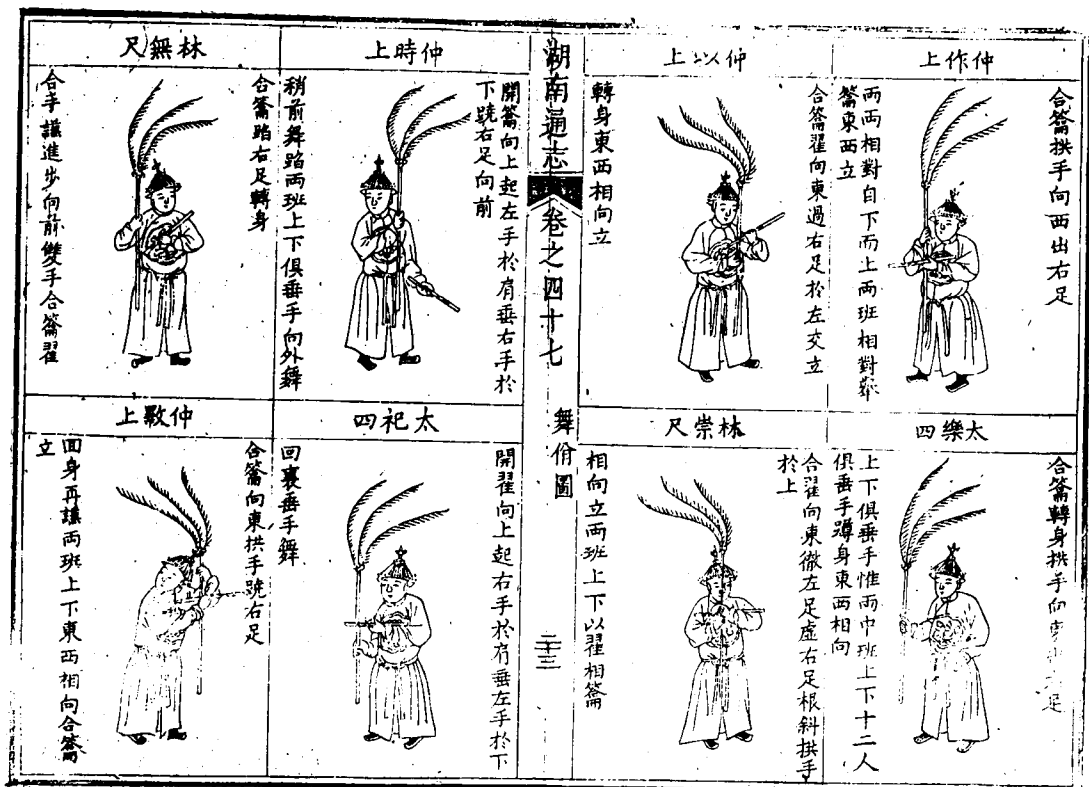 仲作上
合籥拱手向西出右足
兩兩相對自下而上兩班相對舉
籥東西立
仲以上
合籥翟向東過右足於左交立
轉身東西相向立
太樂四
合籥轉身拱手向東足
上下俱垂手惟兩中班上下十二人
俱垂手蹲身東西相向
林崇尺
合翟向東微左足虛右足根斜拱手
於上
相向立兩班上下以翟相籥
湖南通志
卷之四十七
舞佾圖
二十三
仲時上
開籥向上起左手於肩垂右手於
下蹺右足向前
稍前舞蹈兩班上下俱垂手向外舞
林無尺
合籥蹈右足轉身
合手謙進步向前雙手合籥翟
太祀四
開翟向上起右手於肩垂左手於下
回裏垂手舞
仲斁上
合籥向東拱手蹺右足
回身再謙兩班上下東西相向合籥
立